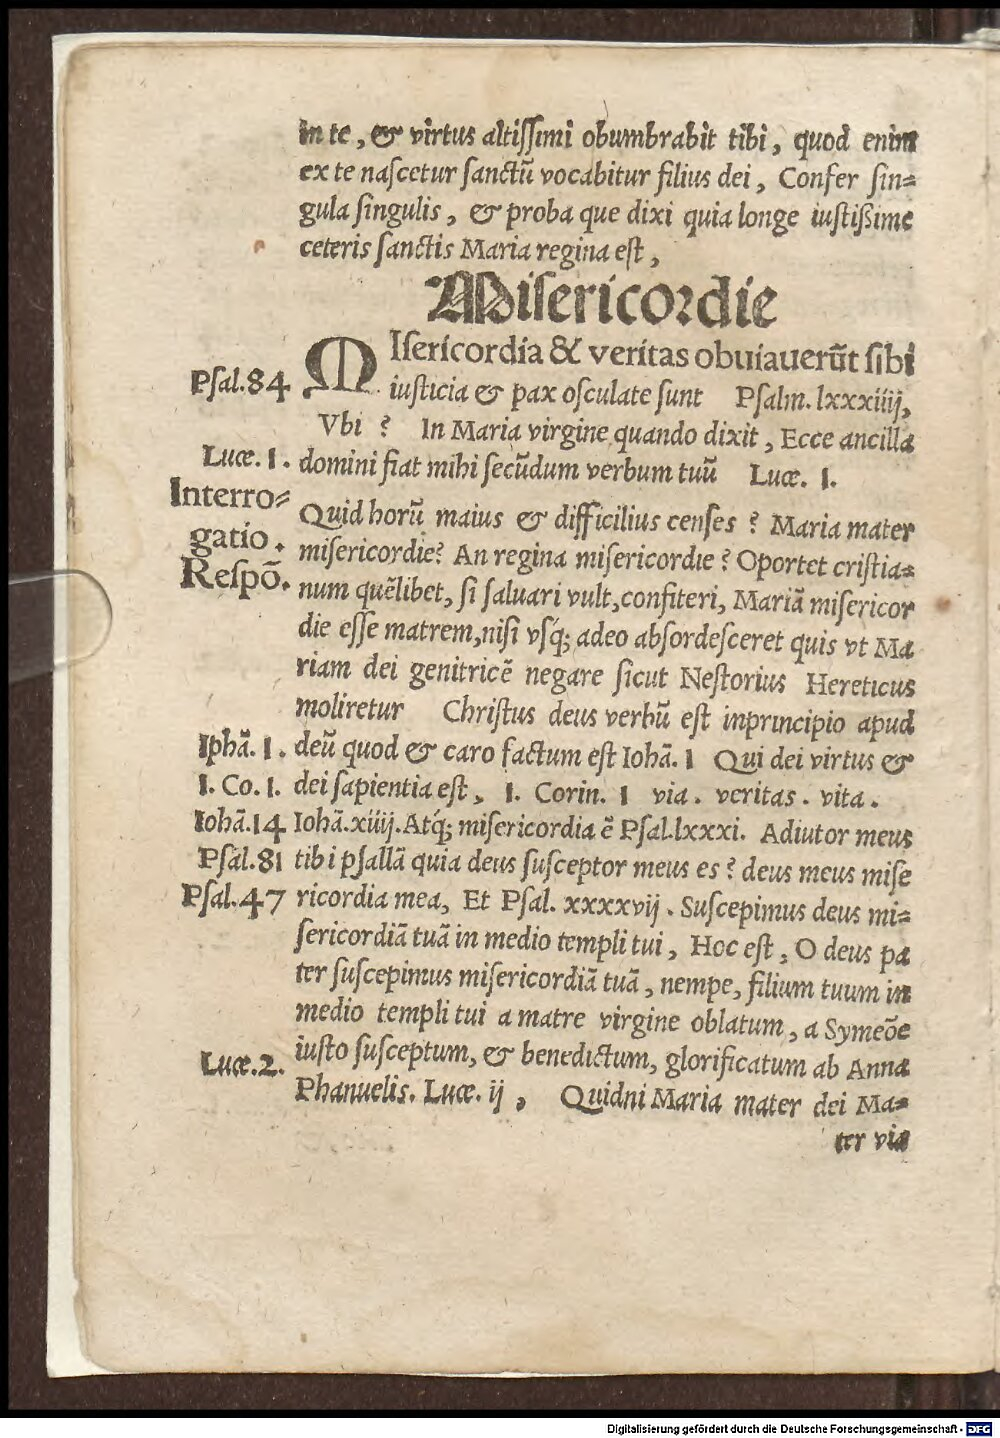 in te, & virtus altiſſimi obumbrabit tibi, quod enim
ex te naſcetur ſanctū vocabitur filius dei, Confer ſin=
gula ſingulis, & proba que dixi quia longe iuſtißime
ceteris ſanctis Maria regina eſt,
Miſericordie
MIſericordia & veritas obuiauerūt ſibi
Pſal.84
iuſticia & pax oſculate ſunt Pſalm. lxxxiiij,
Vbi ? In Maria virgine quando dixit, Ecce ancilla
Lucæ. I.
domini fiat mihi ſecūdum verbum tuū Lucæ. I.
Interro=
gatio.
Reſpō.
Quid horū maius & difficilius cenſes ? Maria mater
miſericordie? An regina miſericordie ? Oportet criſtia=
num quēlibet, ſi ſaluari vult, confiteri, Mariā miſericor
die eſſe matrem, niſi vſq́; adeo abſordeſceret quis vt Ma
riam dei genitricē negare ſicut Neſtorius Hereticus
moliretur Chriſtus deus verbū eſt inprincipio apud
Iphā. I.
deū quod & caro factum eſt Iohā. I Qui dei virtus &
I. Co. I.
dei ſapientia eſt, I. Corin. I via. veritas. vita.
Iohā.14
Iohā.xiiij. Atq́; miſericordia ē Pſal.lxxxi. Adiutor meus
Pſal.81
tibi pſallā quia deus ſuſceptor meus es ? deus meus miſe
Pſal.47
ricordia mea, Et Pſal. xxxxvij. Suſcepimus deus mi=
ſericordiā tuā in medio templi tui, Hoc eſt, O deus pa
ter ſuſcepimus miſericordiā tuā, nempe, filium tuum in
medio templi tui a matre virgine oblatum, a Symeōe
Lucæ.2.
iuſto ſuſceptum, & benedictum, glorificatum ab Anna
Phanuelis. Lucæ. ij, Quidni Maria mater dei Ma=
ter via
Digitalisierung gefördert durch die Deutsche Forschungsgemeinschaft - DFG